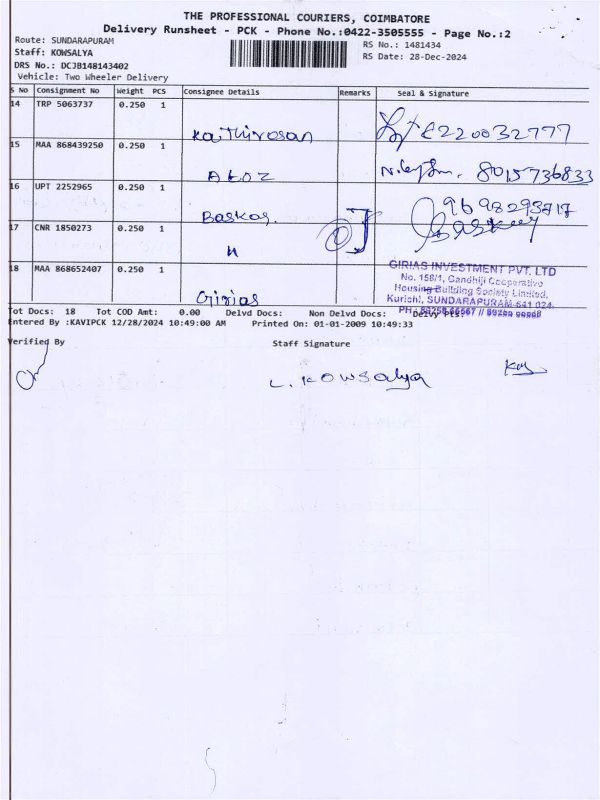 THE PROFESSIONAL COURIERS, COIMBATORE
Delivery Runsheet - PCK - Phone No.:0422-3505555 - Page No.:2
Route: SUNDARAPURAM
RS No.: 1481434
Staff: KOWSALYA
RS Date: 28-Dec-2024
DRS No.: DCJB148143402
Vehicle: Two Wheeler Delivery
S No Consignment No Weight PCS Consignee Details Remarks Seal & Signature
14 TRP 5063737 0.250 1
Kathirosan
15 MAA 868439250 0.250 1
AtoZ 8015736833
16 UPT 2252965 0.250 1
Baskar 9698293717
17 CNR 1850273 0.250 1
Baskar
18 MAA 868652407 0.250 1
Girias
GIRIAS INVESTMENT PVT. LTD
No. 158/1, Gandhiji Cooperative
Housing Building Society Limited,
Kurichi, SUNDARAPURAM-641 024.
Tot Docs: 18 Tot COD Amt: 0.00 Delvd Docs: Non Delvd Docs: Delvy Pts:
Entered By :KAVIPCK 12/28/2024 10:49:00 AM Printed On: 01-01-2009 10:49:33
Verified By Staff Signature
L. Kowsalya